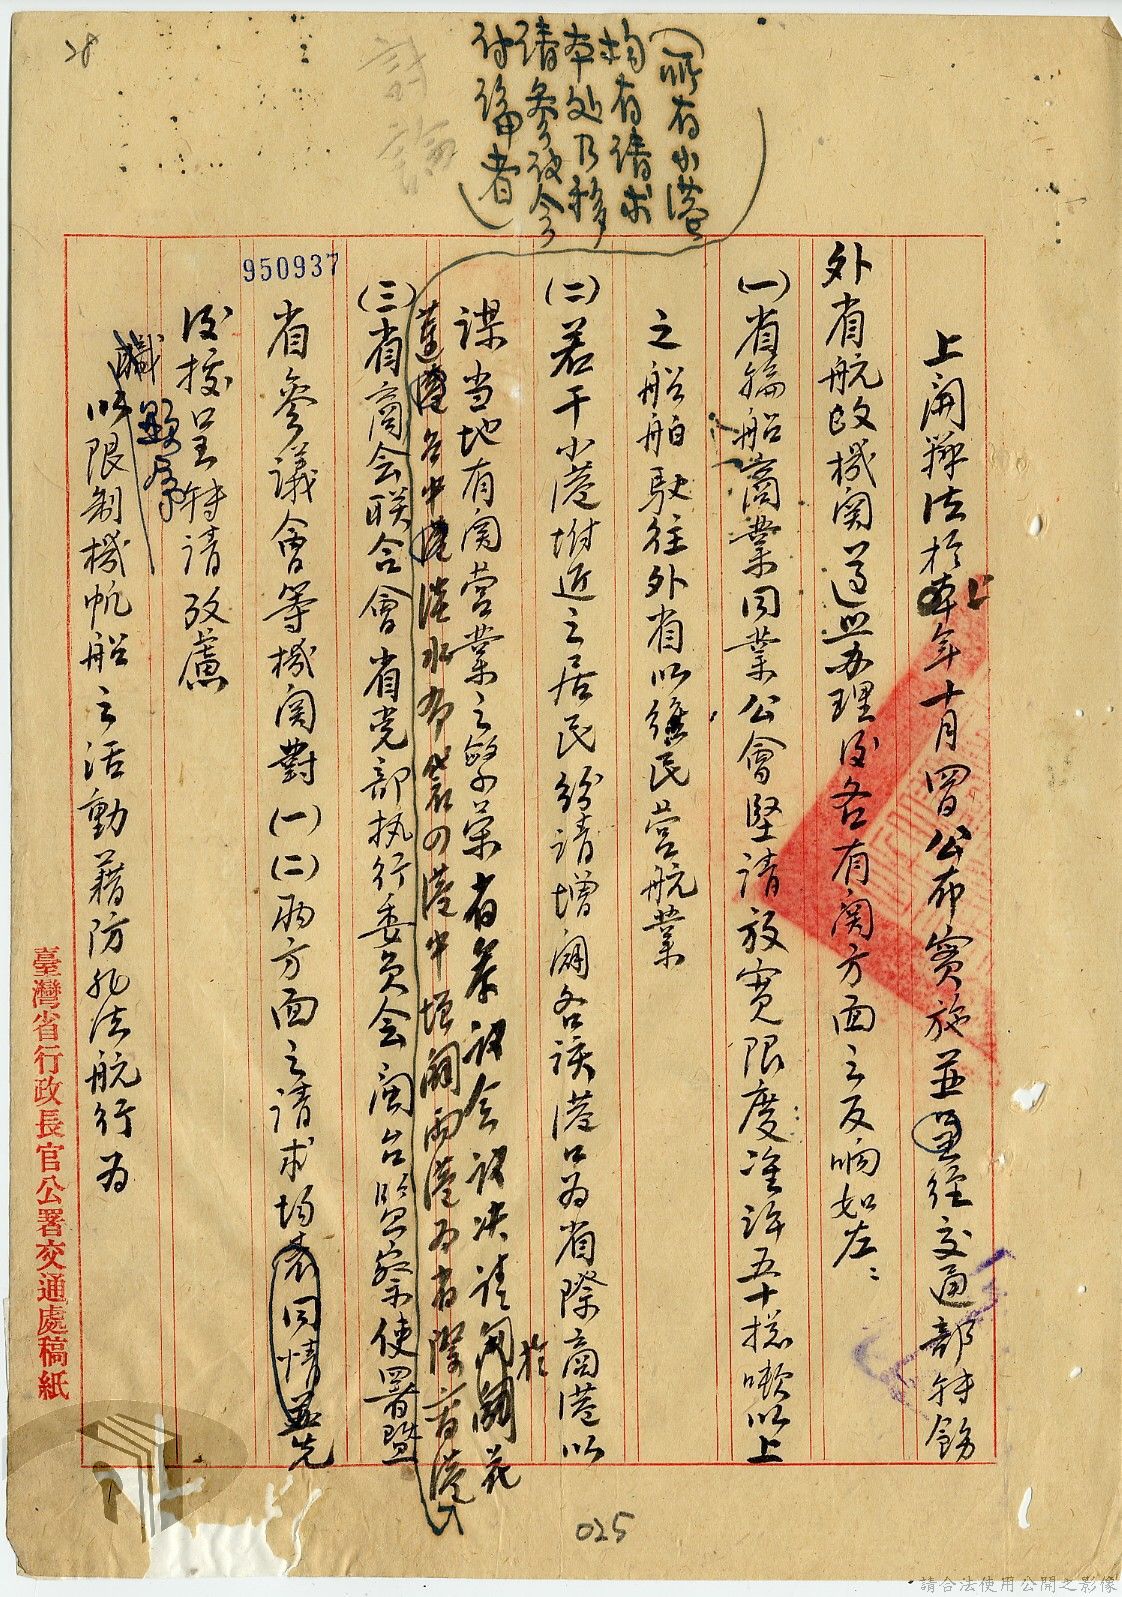 28
(所有小港
均有請求
本处乃移
請参议会
讨论者)
討論
950937
上開辦法於上年十月四日公布實施並經交通部轉飭
外省航政機関遵照办理後各有関方面之反响如左:
(一)省輪船商業同業公會堅請放寬限度准許五十總噸以上
之船舶駛往外省以維民营航業
(二)若干小港附近之居民紛請增闢各該港口為省際商港以
謀当地有関营業之繁荣省参议会议决请於花
蓮港台中港淡水布袋四港中増闢兩港为省際商港
(三)省商会联合會省党部执行委员会閩台監察使署暨
省參議會等機関對(一)(二)两方面之请求均表同情並先
後据呈轉请攷慮
以限制機帆船之活動藉防非法航行为
臺灣省行政長官公署交通處稿紙
025
請合法使用公開之影像